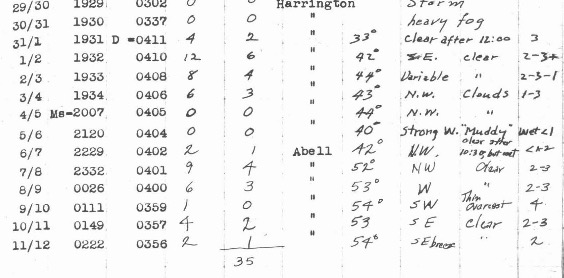 29/30 1929 0302 0 0 Harrington Storm
30/31 1930 0337 0 0 " heavy fog
31/1 1931 D =0411 4 2 " 33° Clear after 12:00 3
1/2 1932 0410 12 6 " 42° S.E. clear 2-3+
2/3 1933 0408 8 4 " 44° Variable " 2-3-1
3/4 1934 0406 6 3 " 43° N.W. Clouds 1-3
4/5 Ms=2007 0405 0 0 " 44° N.W. "
5/6 2120 0404 0 0 " 40° Strong W. "Muddy" Wet <1
6/7 2229 0402 2 1 Abell 42° N.W. clear after 10:30, but wet <1-2
7/8 2332 0401 9 4 " 52° NW Clear 2-3
8/9 0026 0400 6 3 " 53° W " 2-3
9/10 0111 0359 1 0 " 54° SW Thin Overcast 4
10/11 0149 0357 4 2 " 53 SE Clear 2-3
11/12 0222 0356 2 1 " 54° SE breeze " 2
35